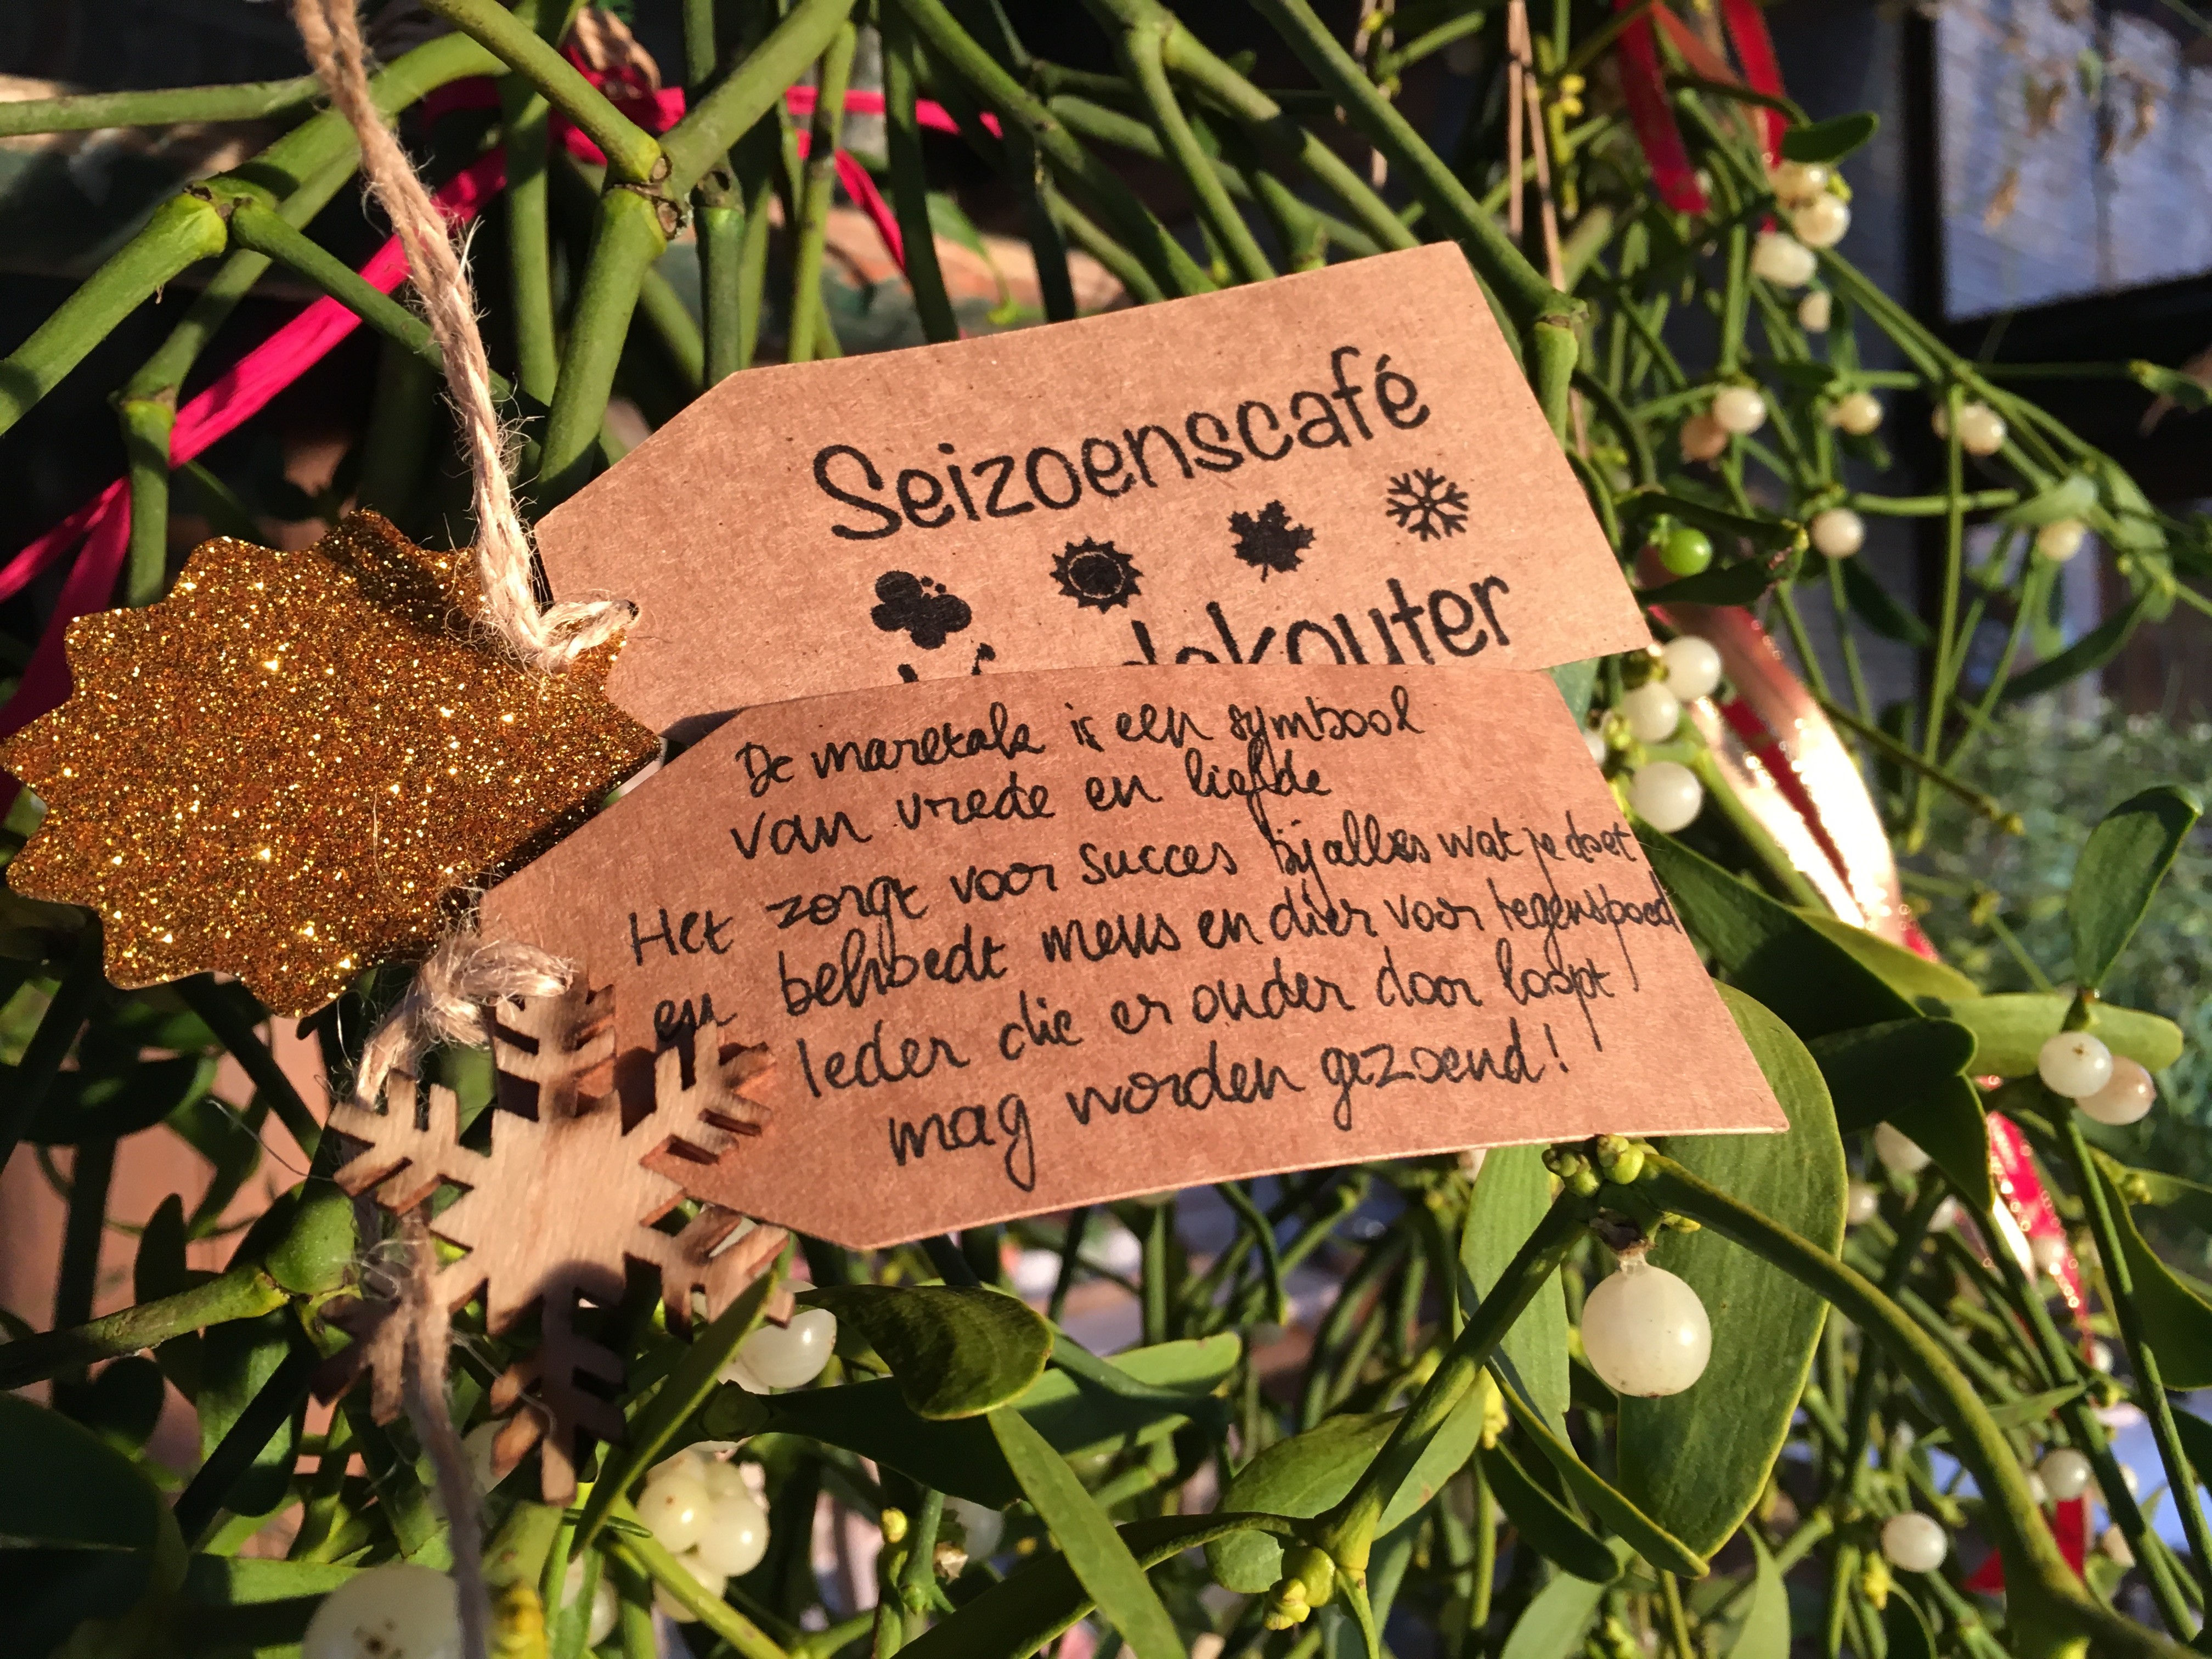 Seizoenscafé
dekouter
De maretak is een symbool
van vrede en liefde
Het zorgt voor succes bij alles wat je doet
en behoedt mens en dier voor tegenspoed
Ieder die er onder door loopt
mag worden gezoend!